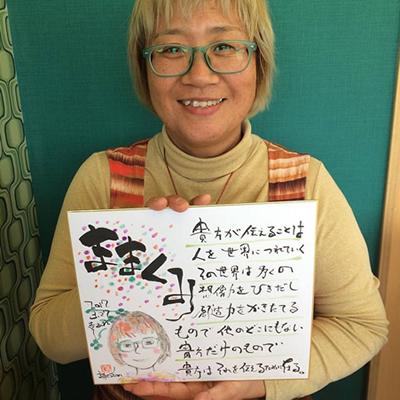 ままくみ
2017
貴方が伝えることは
人を世界につれていく
その世界は多くの
想像力をひきだし
創造力をかきたてる
もので他のどこにもない
貴方だけのもので
貴方はそれを伝えるために在る。